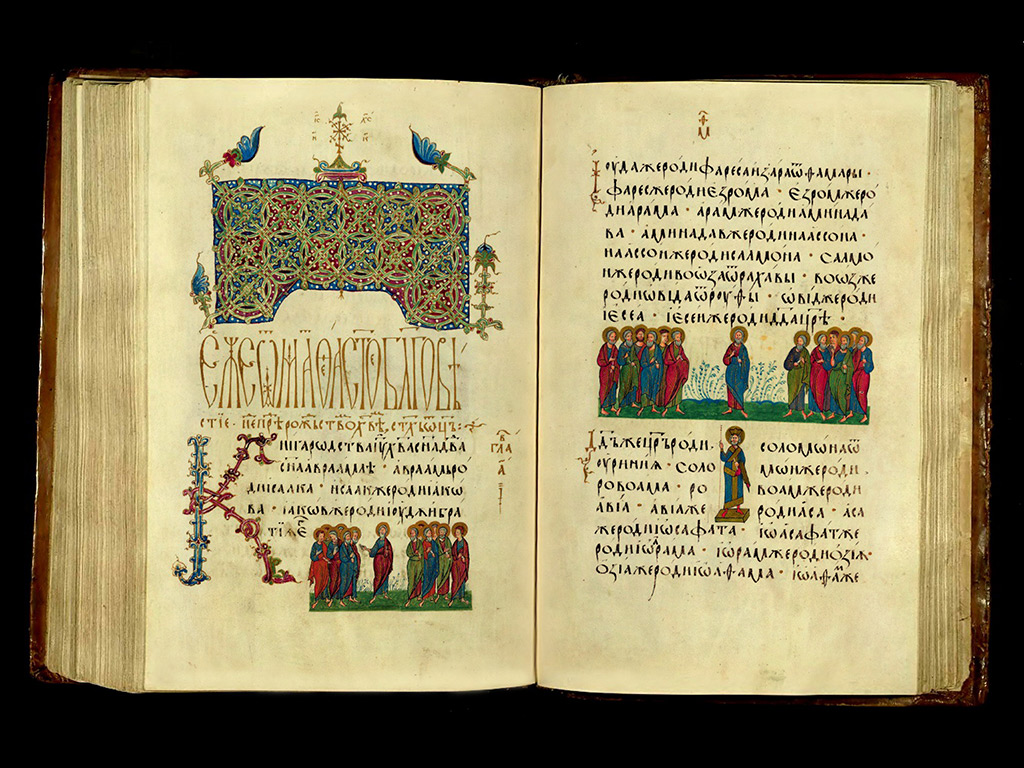 І҃С Х҃С
НИ КА
ЕЖЕ Ѿ МАѲЕА СТ҃О БЛ҃ГОВѢ
стїе·
Книга родства і҃у х҃ва сн҃а дв҃да
сн҃а авраамлѣ · авраамь ро
ди ісаака · исаакже роди іакѡ
ва · іакѡвже роди іоудѫ и братї
ѫ еⷢ
Іоудаже роди фареса и зара ѿ ѳамары ·
фаресже роди езрома · езромже ро
ди арама · арамже роди аминада
ва · аминадавже роди наассона ·
наассонже роди салмона · салмо
нже роди вооза ѿ рахавы · воозже
роди ѡвида ѿ роуѳы · ѡвидже роди
іесеа · іесейже роди дд҃а цр҃ѣ ·
Дд҃ъже цр҃ь роди соломѡна ѿ
оуриинѧ · соло мѡнже роди
ровоама · ро воамже роди
авіа · авіаже роди аса · аса
же роди іѡсафата · іѡасафатже
роди іѡрама · іѡрамже роди озіѫ ·
озіаже роди іѡаѳама · іѡаѳамже